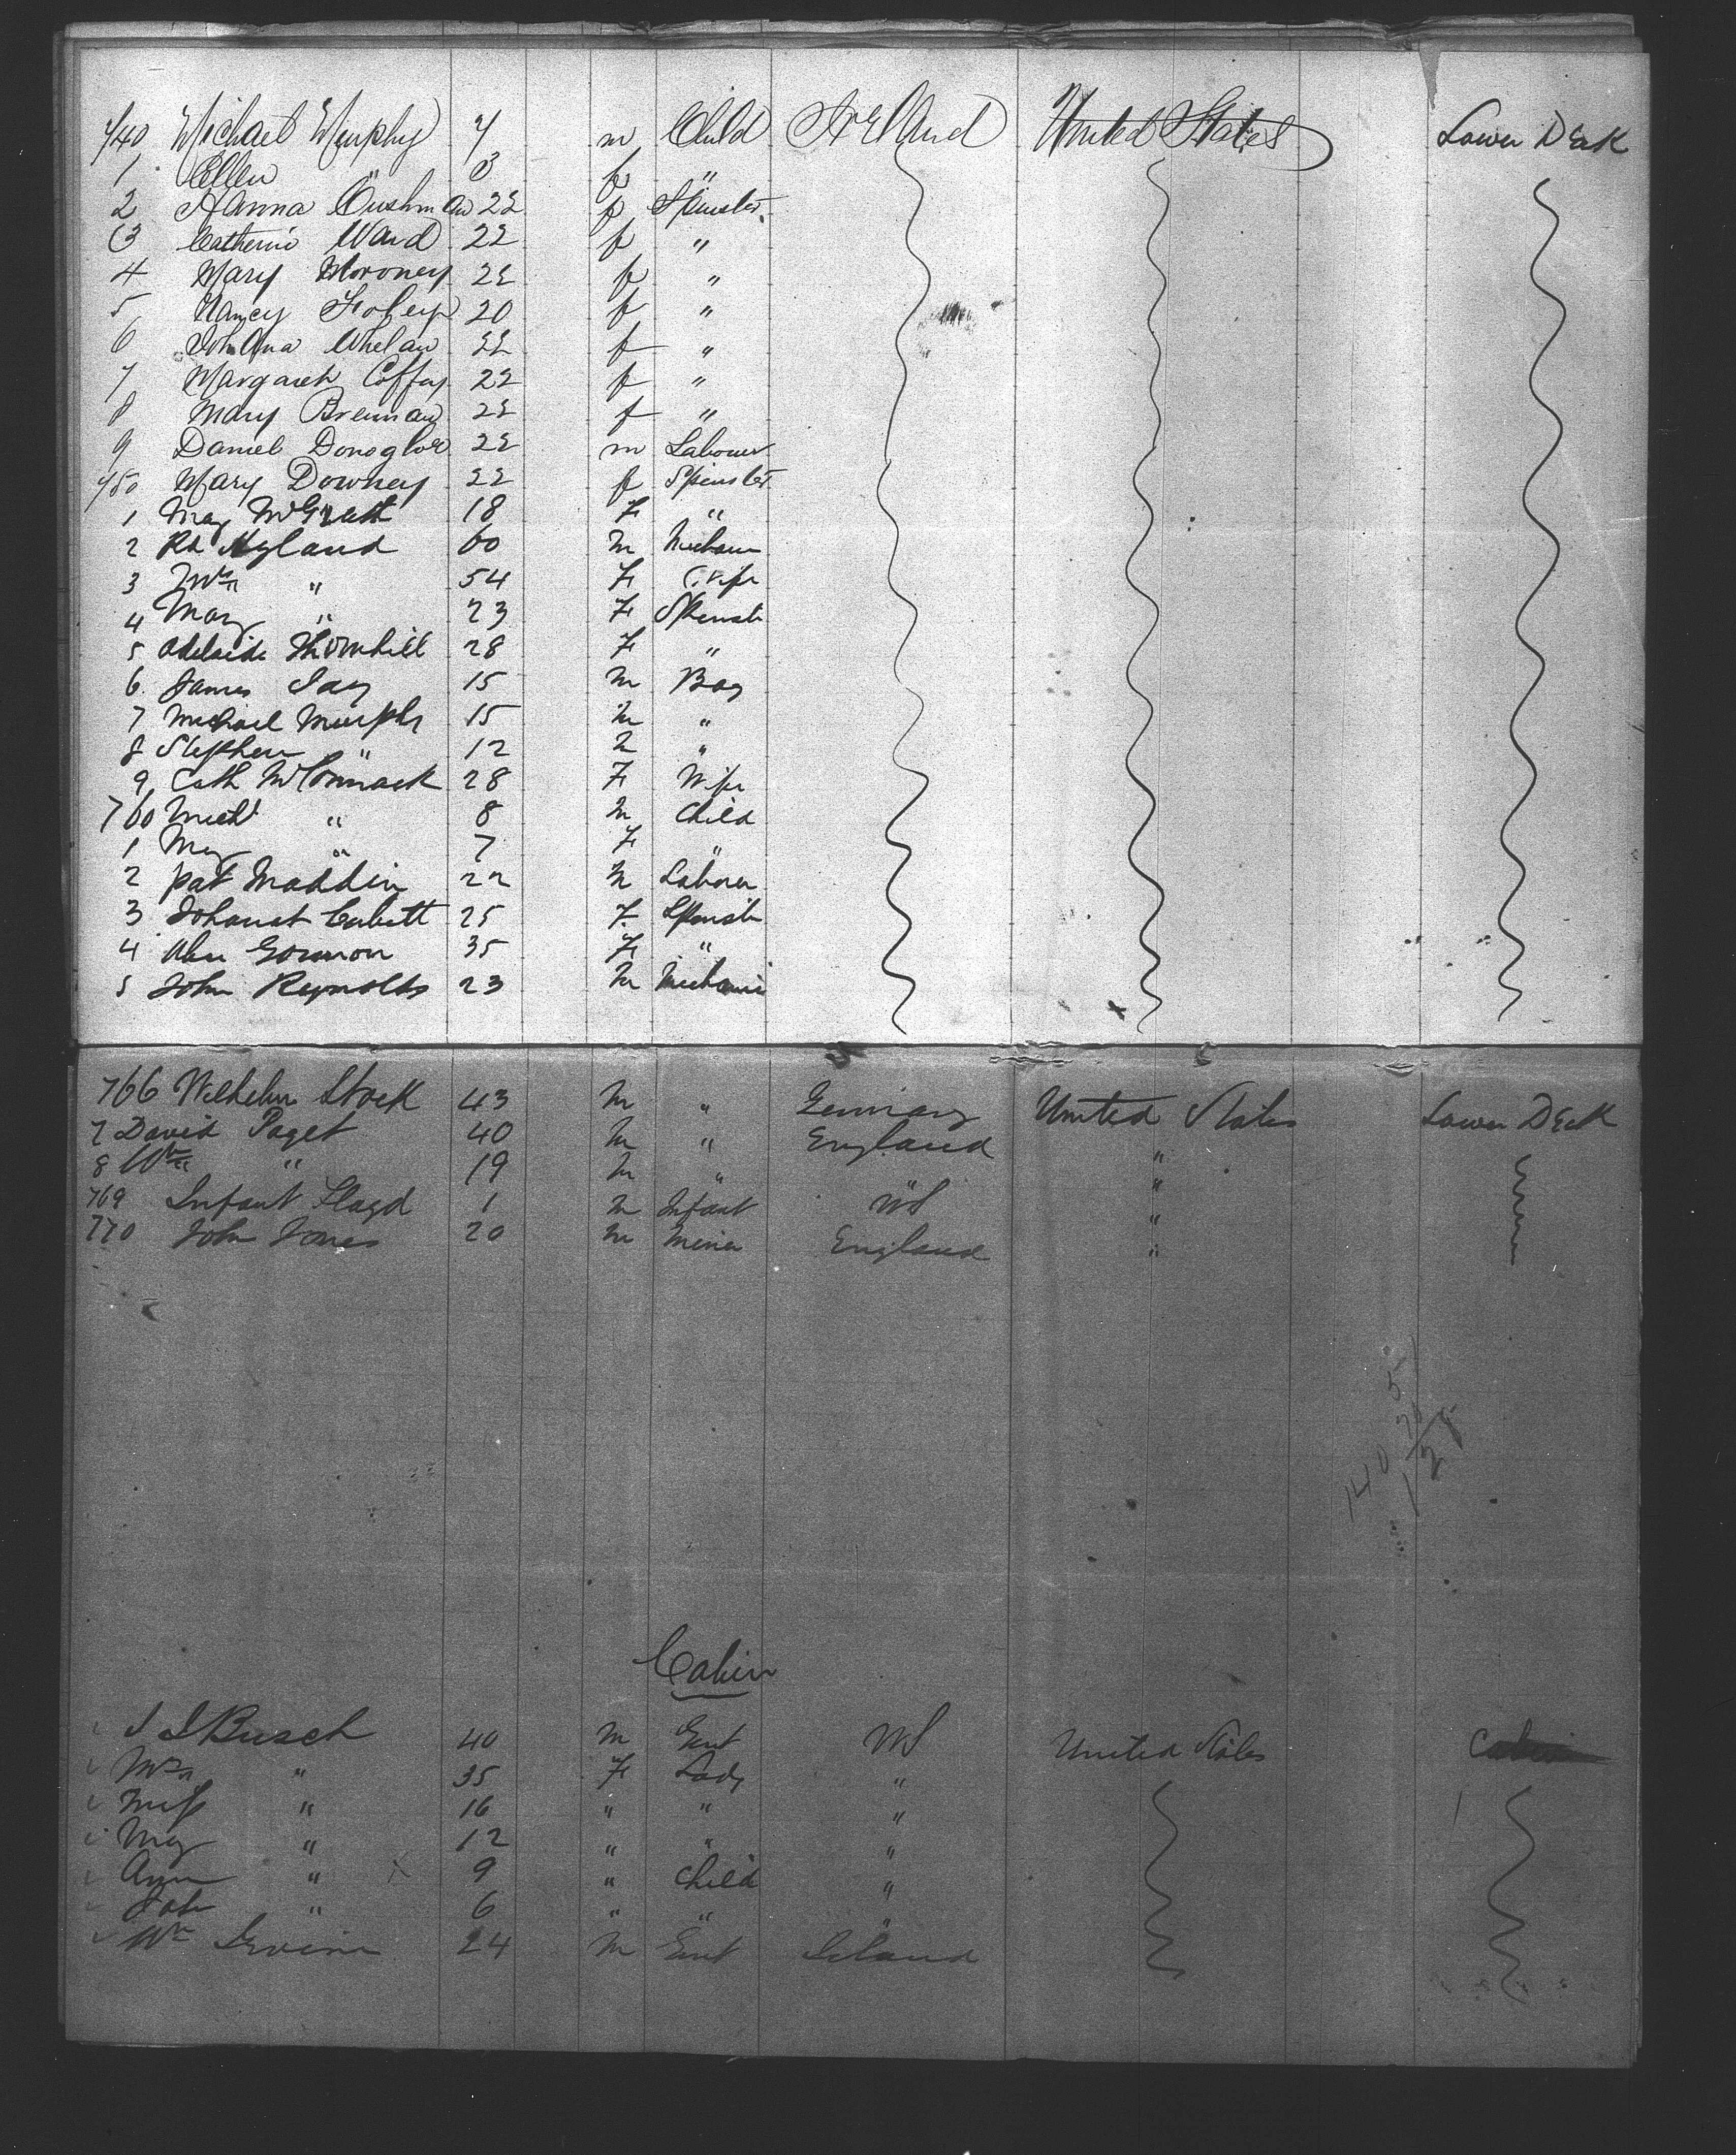 740 Michael Murphy 7 m Child Ireland United States Lower Deck
1 Ellen " 3 f "
2 Hanna Cushman 22 f Spinster
3 Catherine Ward 22 f "
4 Mary Moroney 22 f "
5 Nancy 20 f "
6 Johanna Whelan 22 f "
7 Margareth Coffey 22 f "
8 Mary Brennan 22 f "
9 Daniel Donoghoe 22 m Labourer
750 Mary Downey 22 f Spinster
1 May McGrath 18 F "
2 Rd Hyland 60 M Mechanic
3 Mrs " 54 F Wife
4 Mary " 23 F Spinster
5 Adelaide Thornhill 28 F "
6 James Jay 15 M Boy
7 Michael Murphy 15 M "
8 Stephen " 12 M "
9 Cath McCormack 28 F Wife
760 Michl " 8 M Child
1 Mary " 7 F "
2 Pat Maddin 22 M Laborer
3 Johanah Corbett 25 F Spinster
4 Gorman 35 F "
5 John Reynolds 23 M Mechanic
766 Wilhelm Stock 43 M " Germany United States Lower Deck
7 David Paget 40 M " England "
8 Wm " 19 M " "
769 Infant Floyd 1 M Infant US "
770 John Jones 20 M Miner England "
140 5
128
Cabin
J J Busch 40 M Gent US United States Cabin
Mrs " 35 F Lady "
Miss " 16 " " "
May " 12 " " "
Ann " 9 " Child "
Joh " 6 " " "
Wm Irvine 24 M Gent Ireland